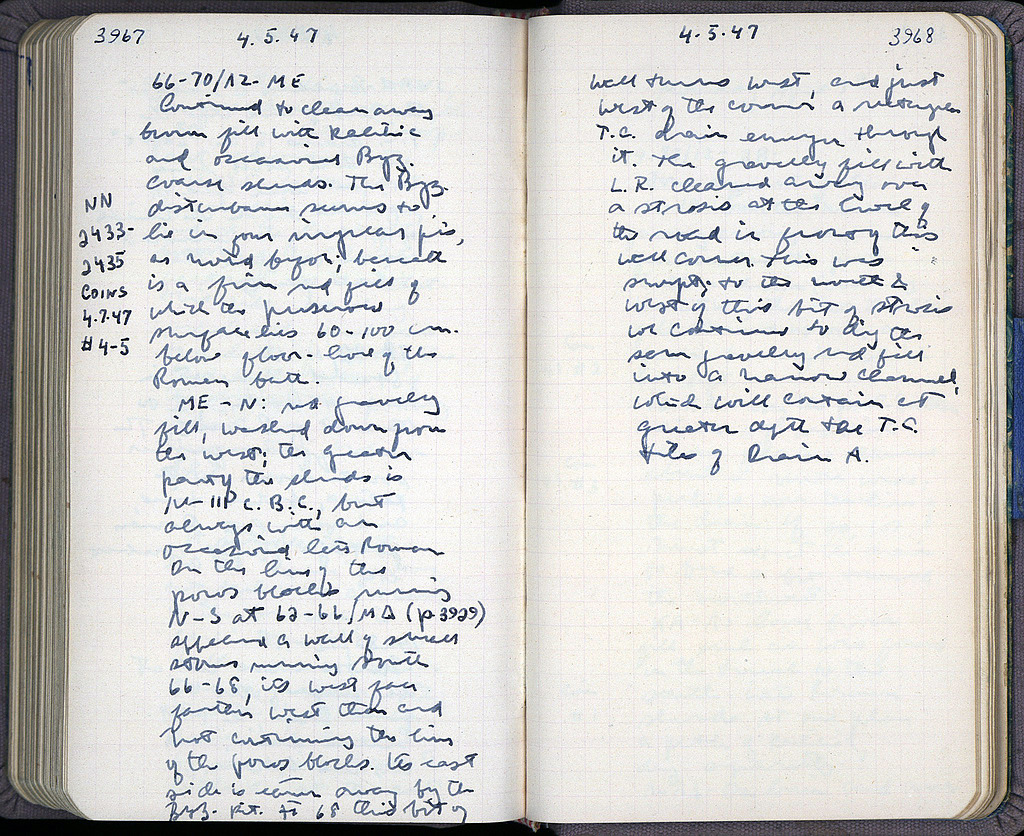 3967
4.5.47
66-70/ΛΖ-ΜΕ
Continued to clean away
brown fill with Relific
and occasional Byz.
coarse sherds. The Byz.
disturbance seems to
lie in four irregular pits,
as noted before; beneath
is a firm red fill of
which the preserved
surface lies 60-100 cm.
below floor-level of the
Roman bath.
ME-N: red gravelly
fill, washed down from
the west; the greater
part of the sherds is
IV-III C. B.C., but
always with an
occasional late Roman
On the line of the
poros blocks running
N-S at 62-66/ΜΔ (p 3929)
appeared a wall of small
stones running South
66-68, its west face
farther west than and
not continuing the line
of the poros blocks. Its east
side is eaten away by the
Byz. Pit. At 68 this bit of
NN
2433-
2435
COINS
4.7.47
#4-5
4.5.47
3968
wall turns west, and just
west of the corner a
T.C. drain emerges through
it. The gravelly fill with
L.R. cleaned away over
a strosis at the level of
the road in front of this
wall corner. This was
empty; to the north &
west of this bit of strosis
we continue to dig the
same gravelly red fill
into a narrow channel,
which will contain at
greater depth the T.C.
tiles of Drain A.